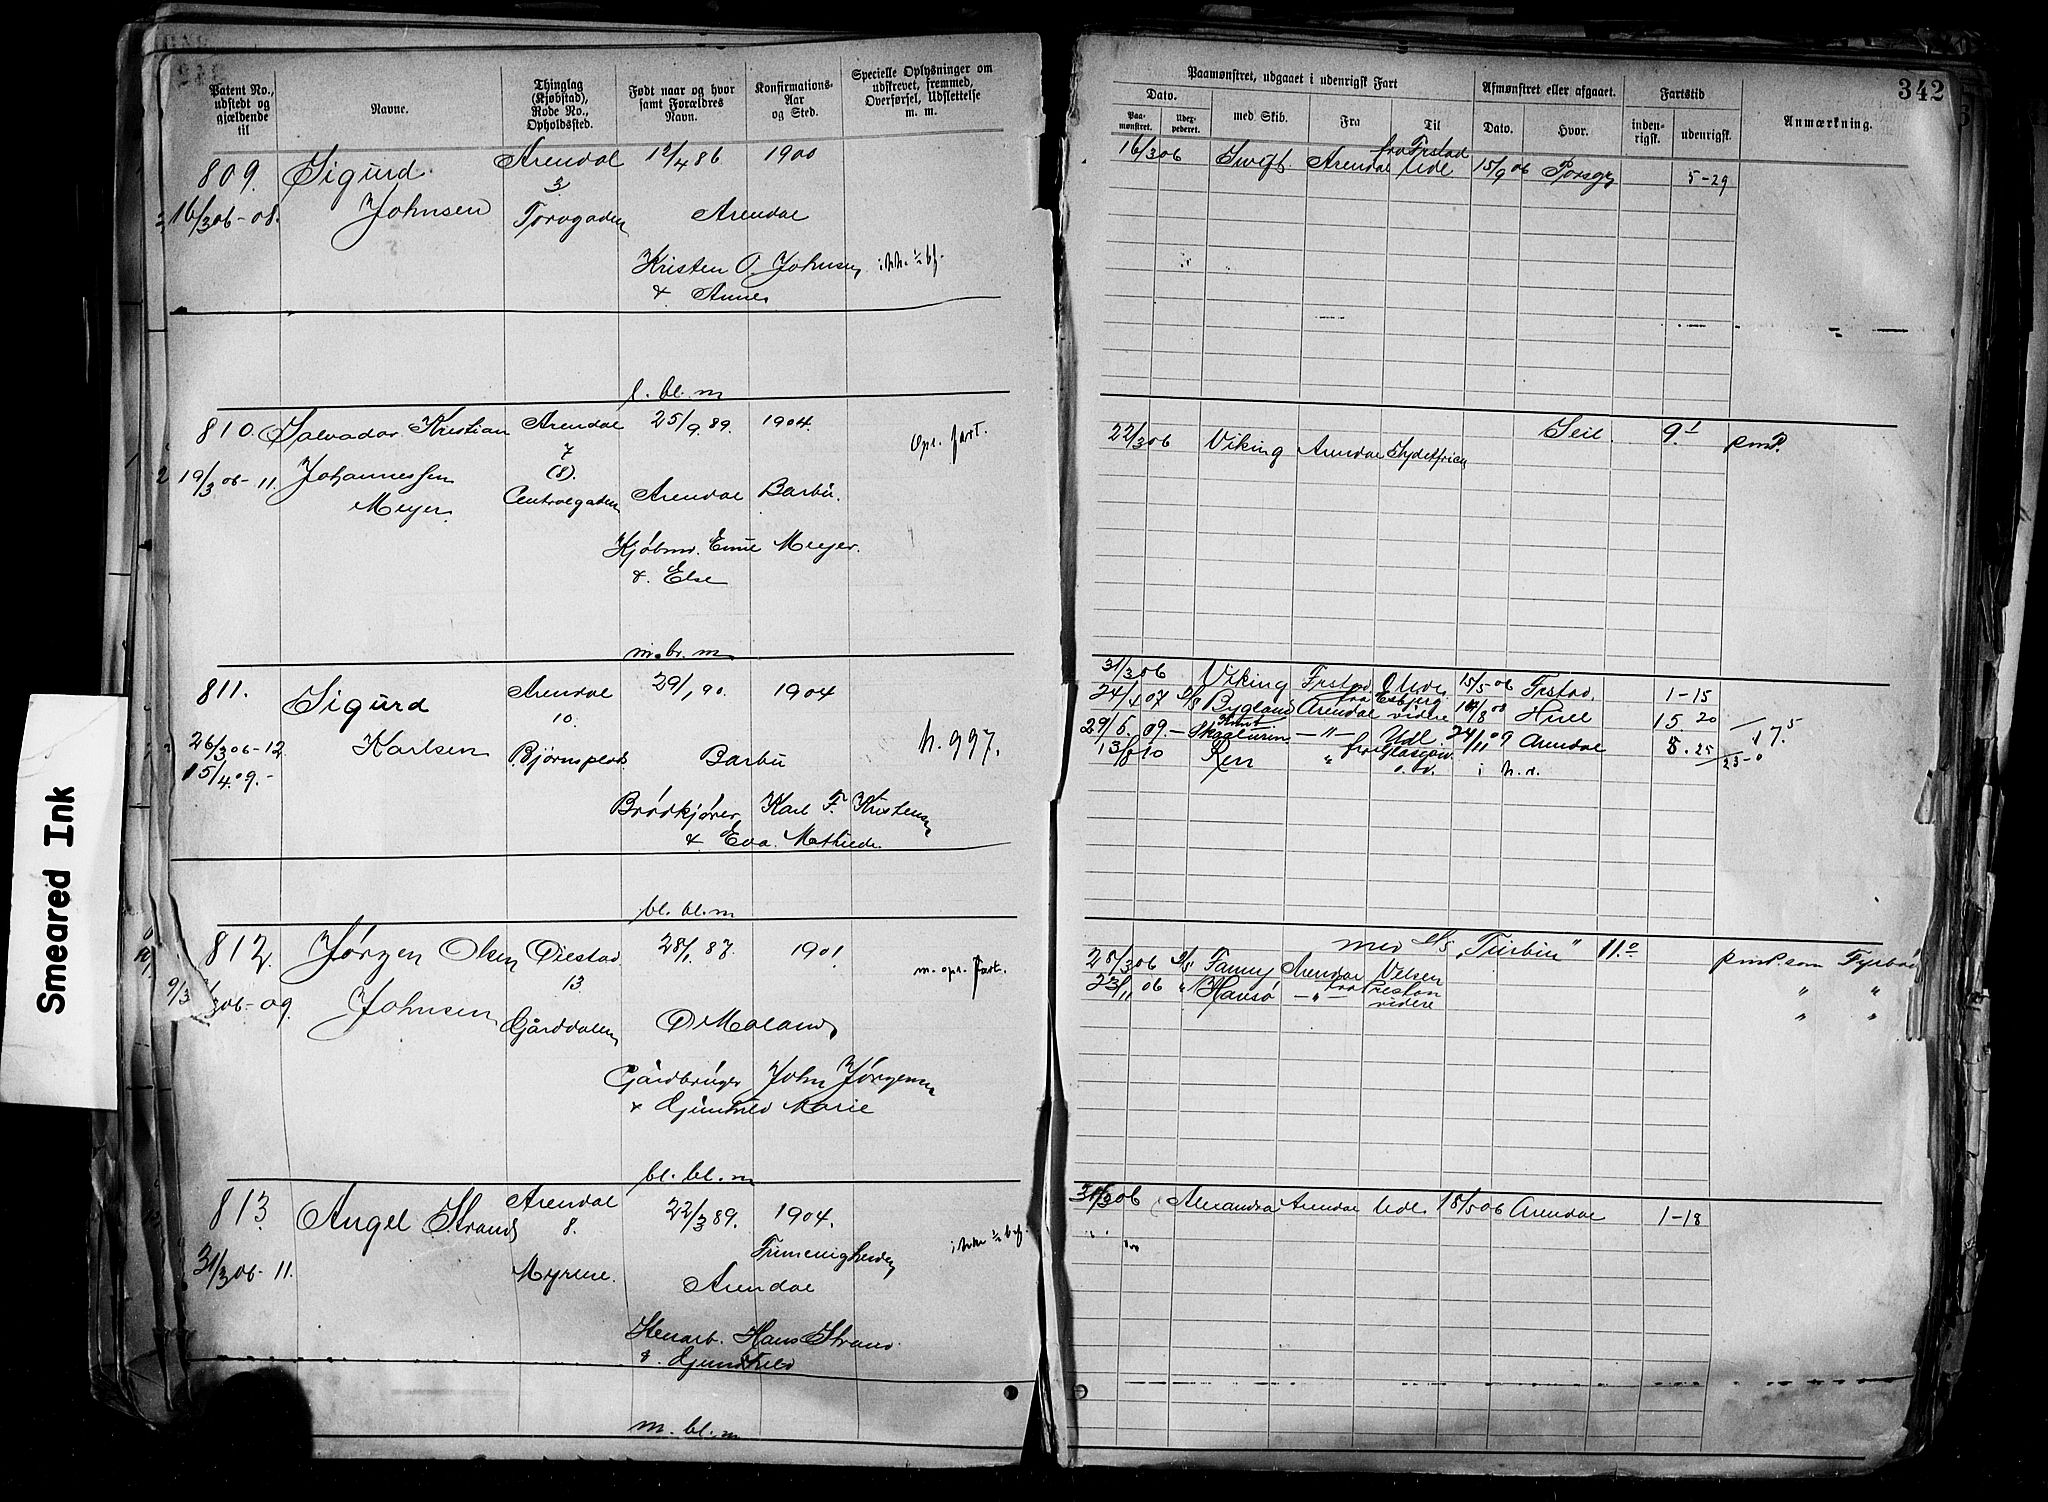 Patent No., udstedt og gjældende til
Navne.
Thinglag (Kjøbstad), Rode No., Opholdssted.
Født naar og hvor samt Forældres Navn.
Konfirmations-Aar og Sted.
Specielle Oplysninger om udskrevet, fremmed, Overførsel, Udslettelse m. m.
809. Sigurd Arendal 12/4 86 1900
3
16/3 06-08. Johnsen Torvgaden Arendal
Kristen O. Johnsen
& Anne
l. bl. m
810. Salvador Kristian Arendal 25/9. 89. 1904.
Opr. fart.
7
(8).
19/3 06-11. Johannessen Centralgaden Arendal Barbu.
Meyer
Kjøbm. Emil Meyer.
& Else
m. br. m
811. Sigurd Arendal 29/1 90. 1904
10.
26/3 06-12. Karlsen Bjørnsplads Barbu h. 997.
15/4. 09.-
Brødkjører Karl F. Kristensen
& Eva Mathilde.
bl. bl. m
812. Jørgen Olsen Øiestad 28/1 87 1901.
m. opr. fart.
13
06-09. Johnsen Gårddalen Ø Moland
Gårdbruger John Jørgensen
& Gunhild Marie
bl. bl. m
813 Angel Strand Arendal 22/3 89. 1904.
8.
Frimenigheden
31/3 06-11. Myrene. Arendal
Stenarb. Hans Strand
& Gunhild
m. bl. m
342
Paamønstret, udgaaet i udenrigsk Fart
Afmønstret eller afgaaet.
Fartstid
Anmærkning.
Dato.
Paamønstret.
Udexpederet.
med Skib.
Fra
Til
Dato.
Hvor.
indenrigsk.
udenrigsk.
fra Frstad
16/3 06 Swift Arendal Udl 15/9 06 Porsgr 5-29
Seil. 9 1 pmP.
22/3 06 Viking Arendal Sydafrica
31/3 06 Viking Frstad Udl 15/5 06 Frstad. 1-15
24/4 07 D/S Bygland Arendal fra Esbjerg videre /8 08 Hull 15 20
29/5. 09.- Skagturen -"- Udl 24/11 09 Arendal 5. 25
17. 5
23-0
13/8 10 Ren " fra Glasgow i h. v.
med S/S "Turbin" 11. 0 pmP. som Fyrbø
28/3 06 D/S Fanny Arendal Velsen " "
23/11 06 " Havsø -"- fra Preston videre " "
31/3 06 Alexandra Arendal Udl. 18/5 06 Arendal 1-18
Smeared Ink